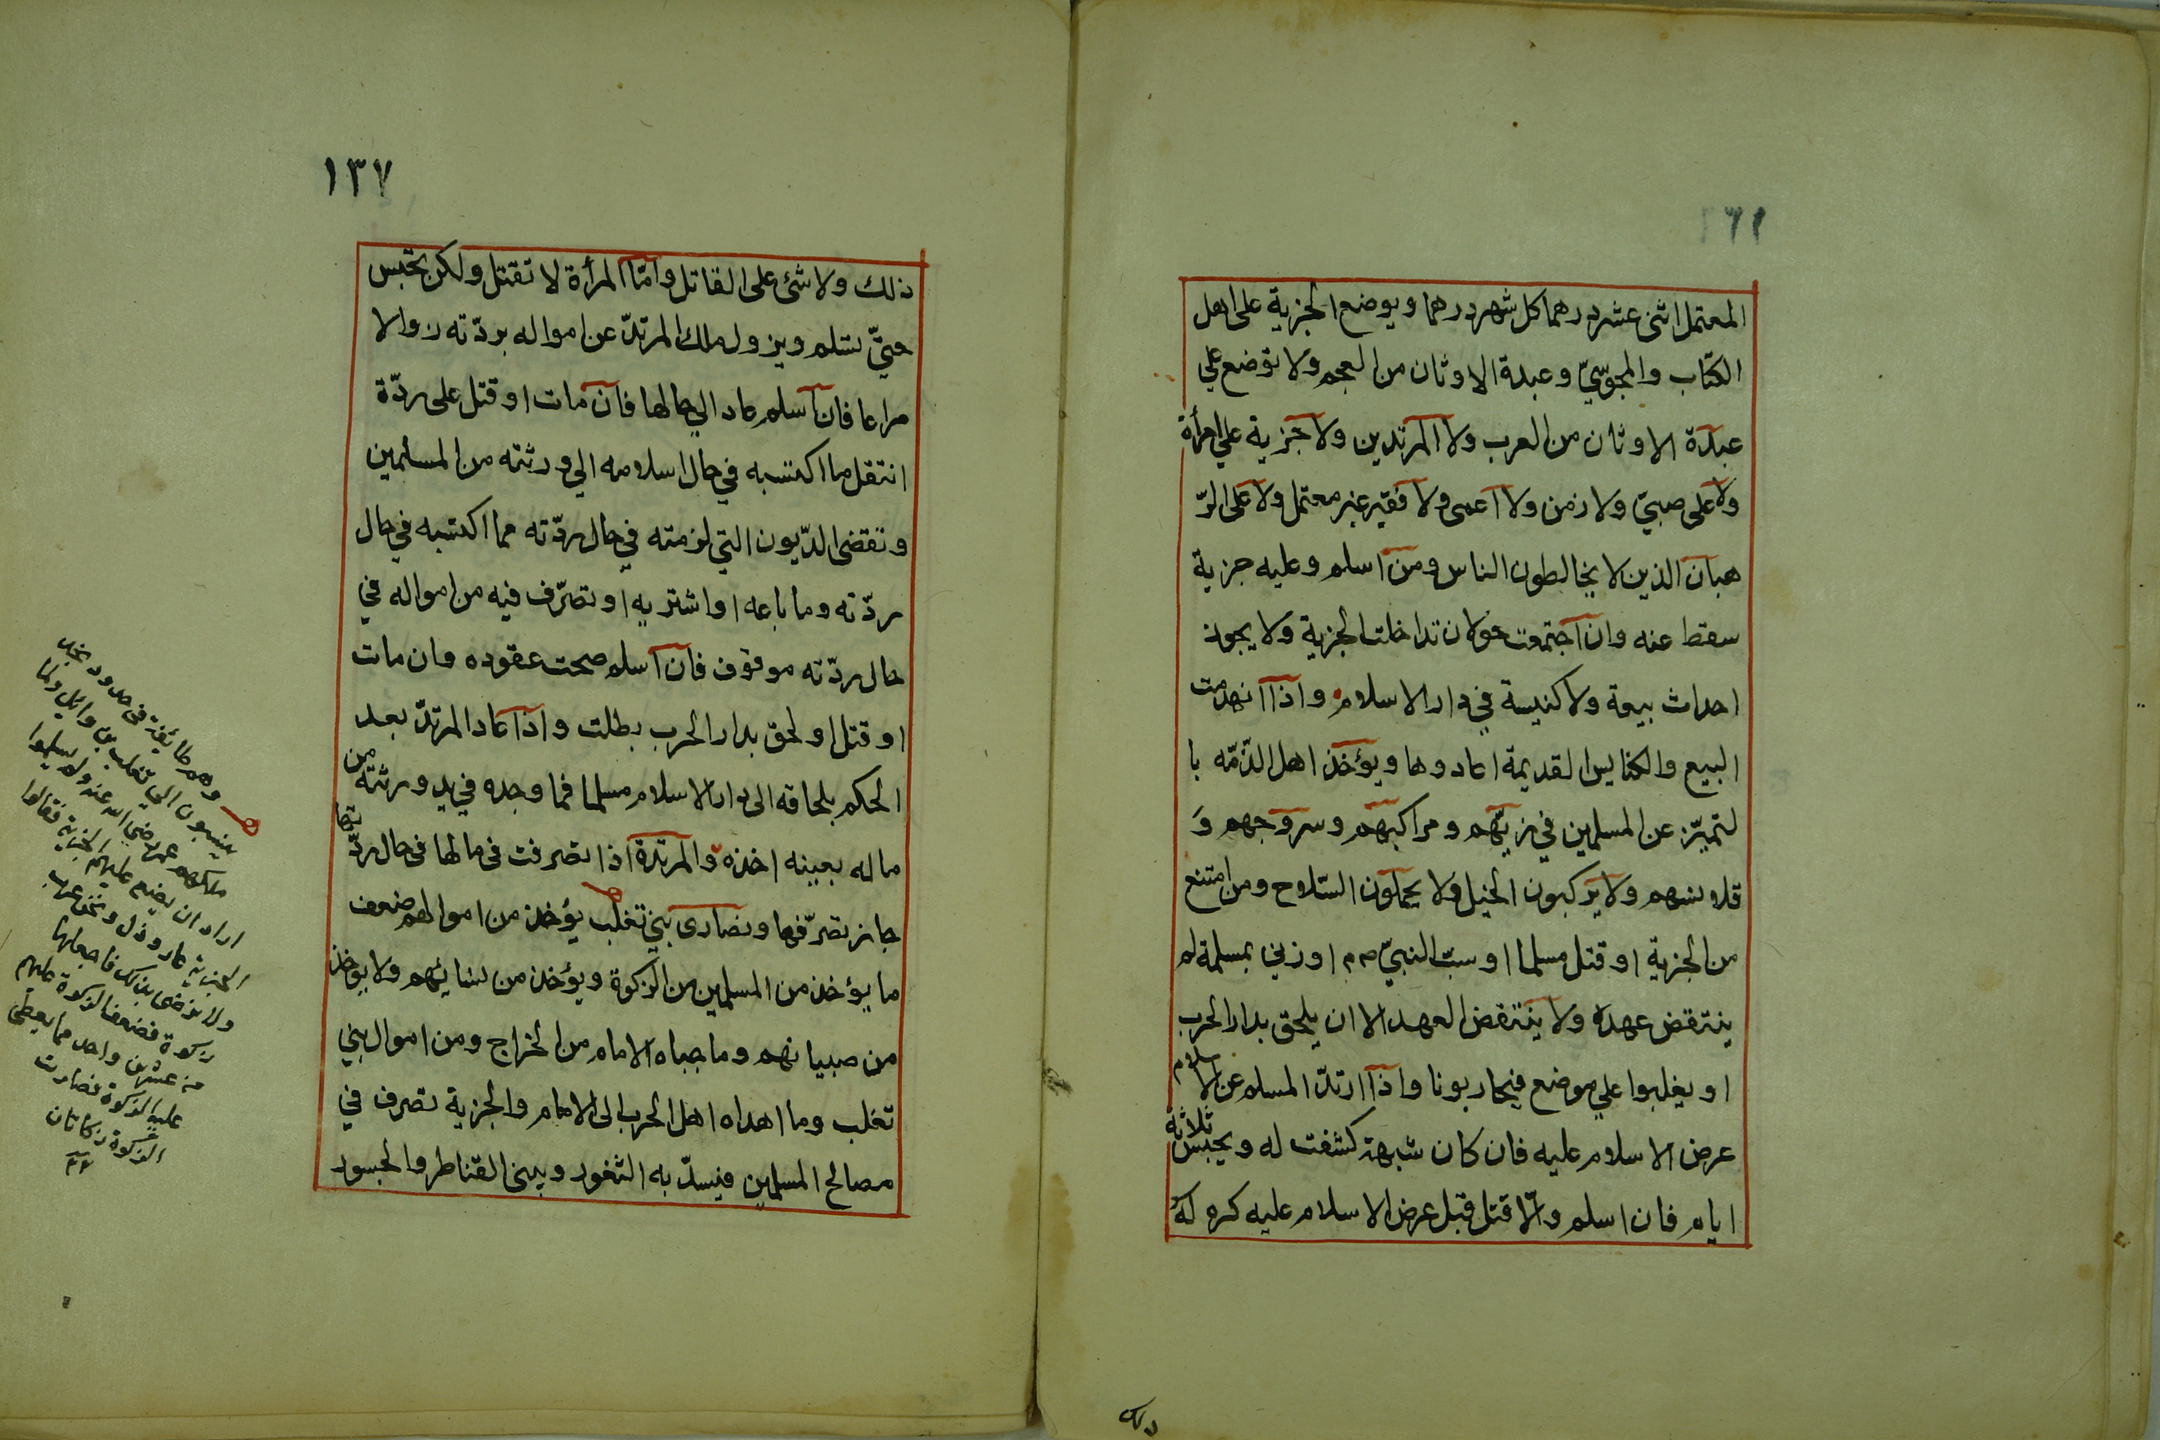 المعتمل اثنى عشر درهما كل شهر درهما ويوضع الجزية على اهل
الكتاب والمجوسيّ وعبدة الاوثان من العجم ولا توضع علي
عبدة الاوثان من العرب ولا المرتدين ولا جزية علي امرأة
ولا على صبيّ ولا زمن ولا اعمى ولا فقير غير معتمل ولا على الرّ
هبان الذين لا يخالطون الناس ومن اسلم وعليه جزية
سقط عنه وان اجتمعت حولان تداخلت الجزية ولا يجوز
احداث بيعة ولا كنيسة في دار الاسلام واذا انهدمت
البيع والكنايس القديمة اعادوها ويؤخذ اهل الذّمّه با
لتميّز عن المسلمين في زيّهم ومراكبهم وسروجهم وَ
قلانسهم ولا يركبون الخيل ولا يحملون السّلاح ومن امتنع
من الجزية او قتل مسلما او سبّ النبيّ صم او زني بمسلمة لم
ينتقض عهده ولا ينتقض العهد الا ان يلحق بدار الحرب
او يغلبوا علي موضع فيحاربونا واذا ارتدّ المسلم عن الاسلام
عرض الاسلام عليه فان كان شبهة كشفت له ويحبس ثلاثة
ايام فان اسلم والّا قتل قبل عرض الاسلام عليه كره له
ذلك
١٣٧
ذلك ولا شئ على القاتل وامّا المرأة لا تقتل ولكن تحبس
حتيّ تسلم ويزول ملك المرتدّ عن امواله بردّته زوالا
مراعا فان اسلم عاد الي حالها فان مات او قتل على ردّة
انتقل ما اكتسبه في حال اسلامه الي ورثته من المسلمين
وتقضى الدّيون التي لزمته في حال ردّته مما اكتسبه في حال
ردّته وما باعه او اشتريه او تصرّف فيه من امواله في
حال ردّته موقوف فان اسلم صحت عقوده وان مات
او قتل او لحق بدار الحرب بطلت واذا عاد المرتدّ بعد
الحكم بلحاقه الى دار الاسلام مسلما فما وجده في يد ورثته من
ماله بعينه اخذه والمرتدة اذا تصرفت في مالها في حال ردّتها
جايز تصرّفها ونصارى بني تغلب يؤخذ من اموالهم ضعف
ما يؤخذ من المسلمين من الزكوة ويؤخذ من نسائهم ولا يؤخذ
من صبيانهم وما جباه الامام من الخراج ومن اموال بني
تغلب وما اهداه اهل الحرب الى الامام والجزية تصرف في
مصالح المسلمين فيسدّ به الثغور ويبنى القناطر والجسور
وهم طائفة في حدود
ينسبون الي تغلب بن وائل ولما
ملكهم عمر رضي الله عنه ولم يسلموا
اراد ان يضع عليهم الجزية فقالوا
الجزية عار وذل ونحن عرب
ولا نرضى بذلك فاجعلها
زكوة فضعف الزكوة عليهم
من عشرين واحد مما يعطى
عليه الزكوة فصارت
الزكوة زكاتان